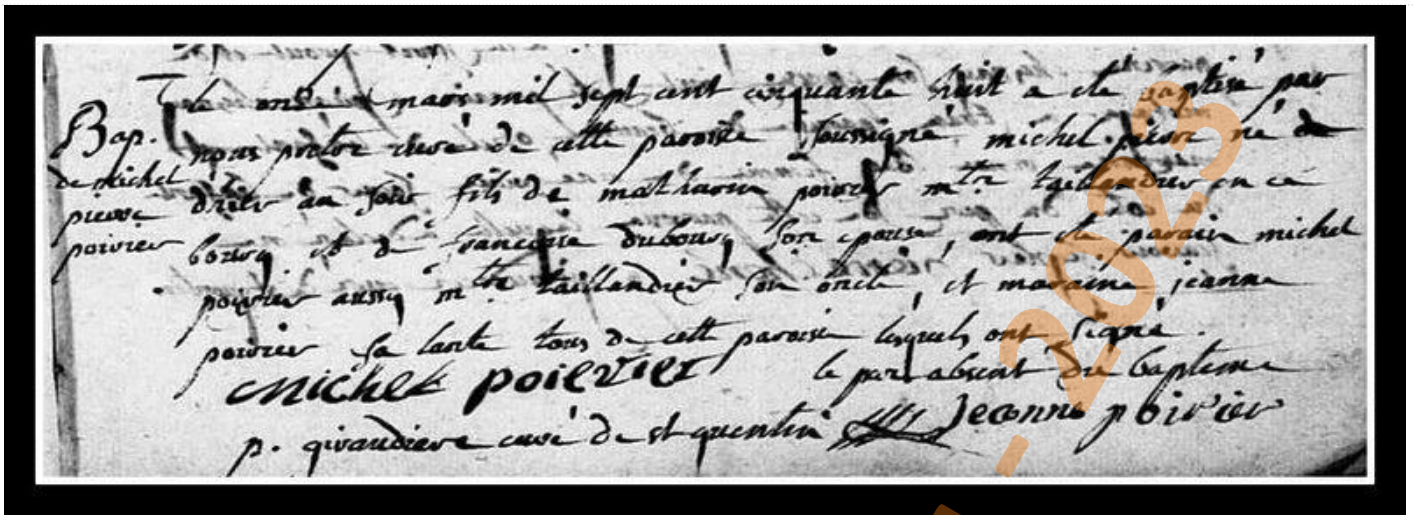 Bap.
de michel
pierre
poirier
le onze mars mil sept cent cinquante huit a ete baptisé par
nous pretre curé de cette paroisse soussigné michel pierre né de
hier au soir fils de mathurin poirier mtre taillandier en ce
bourg et de francoise dubourg son epouse, ont ete parain michel
poirier aussy mtre taillandier son oncle, et maraine jeanne
poirier sa tante tous de cette paroisse lesquels ont signé.
le pere absent du bapteme
michel poierier
jeanne poirier
p. giraudiere curé de st quentin
- 2023